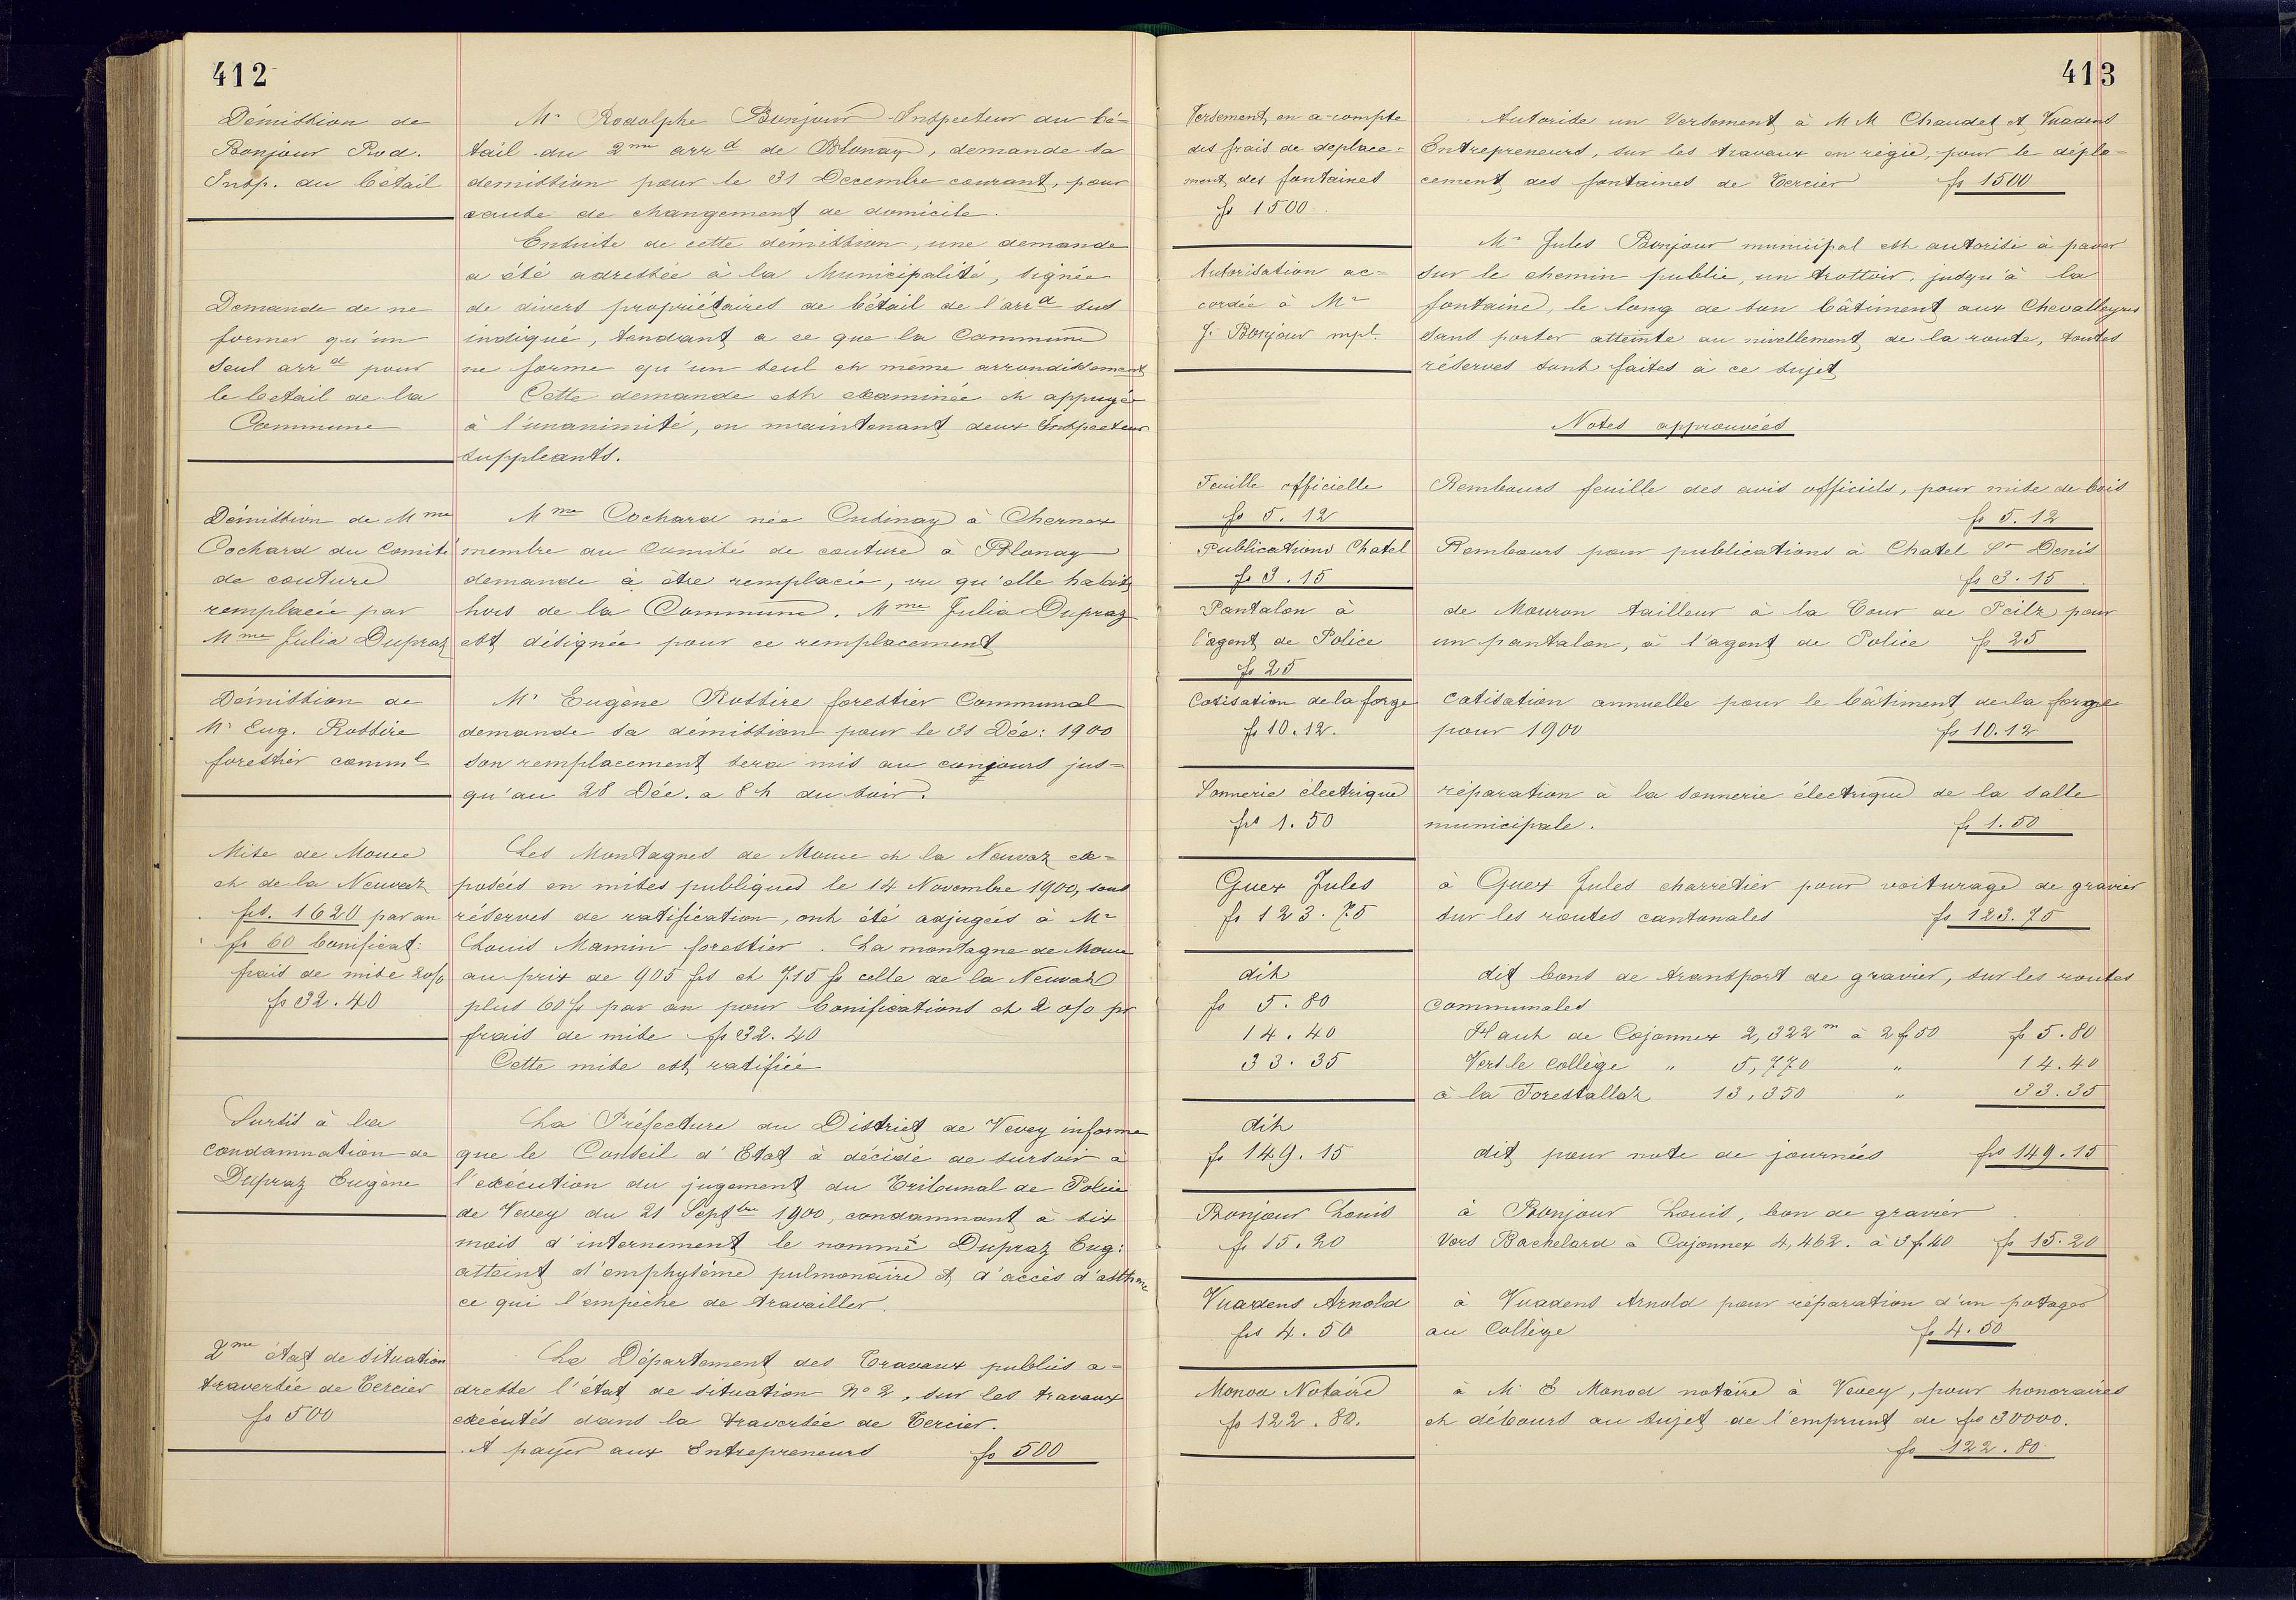 412
Démission de
Bonjour Rod.
Insp. du bétail
Mr Rodolphe Bonjour Inspecteur du bé-
tail du 2me arrd de Blonay, demande sa
demission pour le 31 Decembre courant, pour
cause de changement de domicile.
Ensuite de cette démission, une demande
a été adressée à la Municipalité, signée
de divers propriétaires de bétail de l'arrd sus
indiqué, tendant a ce que la Commune
ne forme qu'un seul et même arrondissement
Cette demande est examinée et appuyée
à l'unanimité, en maintenant deux Inspecteurs
suppleants.
Demande de ne
former qu'un
seul arrd pour
le betail de la
Commune
Démission de Mme
Cochard du Comité
de couture
remplacée par
Mme Julia Dupraz
Mme Cochard née Cusinay à Chernex
membre du Comité de couture à Blonay
demande à être remplacée, vu qu'elle habite
hors de la Commune. Mme Julia Dupraz
est désignée pour ce remplacement
Démission de
Mr Eug. Rossire
forestier comml
Mr Eugène Rossire forestier Communal
demande sa démission pour le 31 Déc: 1900
son remplacement sera mis au concours jus-
qu'au 28 Déc. a 8 h du soir.
Mise de Mouce
et de la Neuvaz
frs. 1620 par an
fs 60 bonificat:
frais de mise 2 o/o
fs 32.40
Les Montagnes de Mouce et la Neuvaz ex-
posées en mises publiques le 14 Novembre 1900, sous
réserves de ratification, ont été adjugées à Mr
Louis Mamin forestier. La montagne de Mouce
au prix de 905 frs et 715 fs celle de la Neuvaz
plus 60 fs par an pour bonifications et 2 o/o pr
frais de mise fs 32.40
Cette mise est ratifiée
Sursis à la
condamnation de
Dupraz Eugène
La Préfecture du District de Vevey informe
que le Conseil d'Etat à décidé de sursoir à
l'exécution du jugement du Tribunal de Police
de Vevey du 21 Septbre 1900, condamnant à six
mois d'internement le nommé Dupraz Eug:
atteint d'emphysème pulmonaire et d'accès d'asthme
ce qui l'empêche de travailler.
2me état de situation
traversée de Tercier
fs 500
Le Département des Travaux publics a-
dresse l'état de situation No 2, sur les travaux
exécutés dans la traversée de Tercier.
A payer aux Entrepreneurs fs 500
413
Versement en a-compte
des frais de deplace-
ment des fontaines
fs 1500
Autorise un Versement à MM Chaudet et Vuadens
Entrepreneurs, sur les travaux en régie, pour le dépla-
cement des fontaines de Tercier fs 1500
Autorisation ac-
cordée à Mr
J. Bonjour mpl.
Mr Jules Bonjour municipal est autorisé à paver
sur le chemin public, un trottoir jusqu'à la
fontaine, le long de son bâtiment aux Chevalleyres
sans porter atteinte au nivellement de la route, toutes
réserves sont faites à ce sujet
Notes approuvées
Feuille officielle
fs 5.12
Rembours feuille des avis officiels, pour mise de bois
fs 5.12
Publications Chatel
fs 3.15
Rembours pour publications à Chatel St Denis
fs 3.15
Pantalon à
l'agent de Police
fs 25
de Mouron tailleur à la Tour de Peilz pour
un pantalon, à l'agent de Police fs 25
Cotisation de la forge
fs 10.12.
cotisation annuelle pour le bâtiment de la forge
pour 1900 fs 10.12
Sonnerie électrique
frs 1.50
réparation à la sonnerie électrique de la salle
municipale. fs 1.50
Guex Jules
fs 123.75
à Guex Jules charretier pour voiturage de gravier
sur les routes cantonales fs 123.75
dit
fs 5.80
14.40
33.35
dit bons de transport de gravier, sur les routes
communales
Haut de Cojonnex 2,322m à 2 f 50 fs 5.80
Vers le collège " 5,770 " 14.40
à la Forestallaz 13,350 " 33.35
dit
fs 149.15
dit pour note de journées frs 149.15
Bonjour Louis
fs 15.20
à Bonjour Louis, bon de gravier
Vers Bachelard à Cojonnex 4,462. à 3 f 40 fs 15.20
Vuadens Arnold
frs 4.50
à Vuadens Arnold pour réparation d'un potager
au Collège fs 4.50
Monod Notaire
fs 122.80.
à Mr E Monod notaire à Vevey, pour honoraires
et débours au sujet de l'emprunt de fs 30000.
fs 122.80